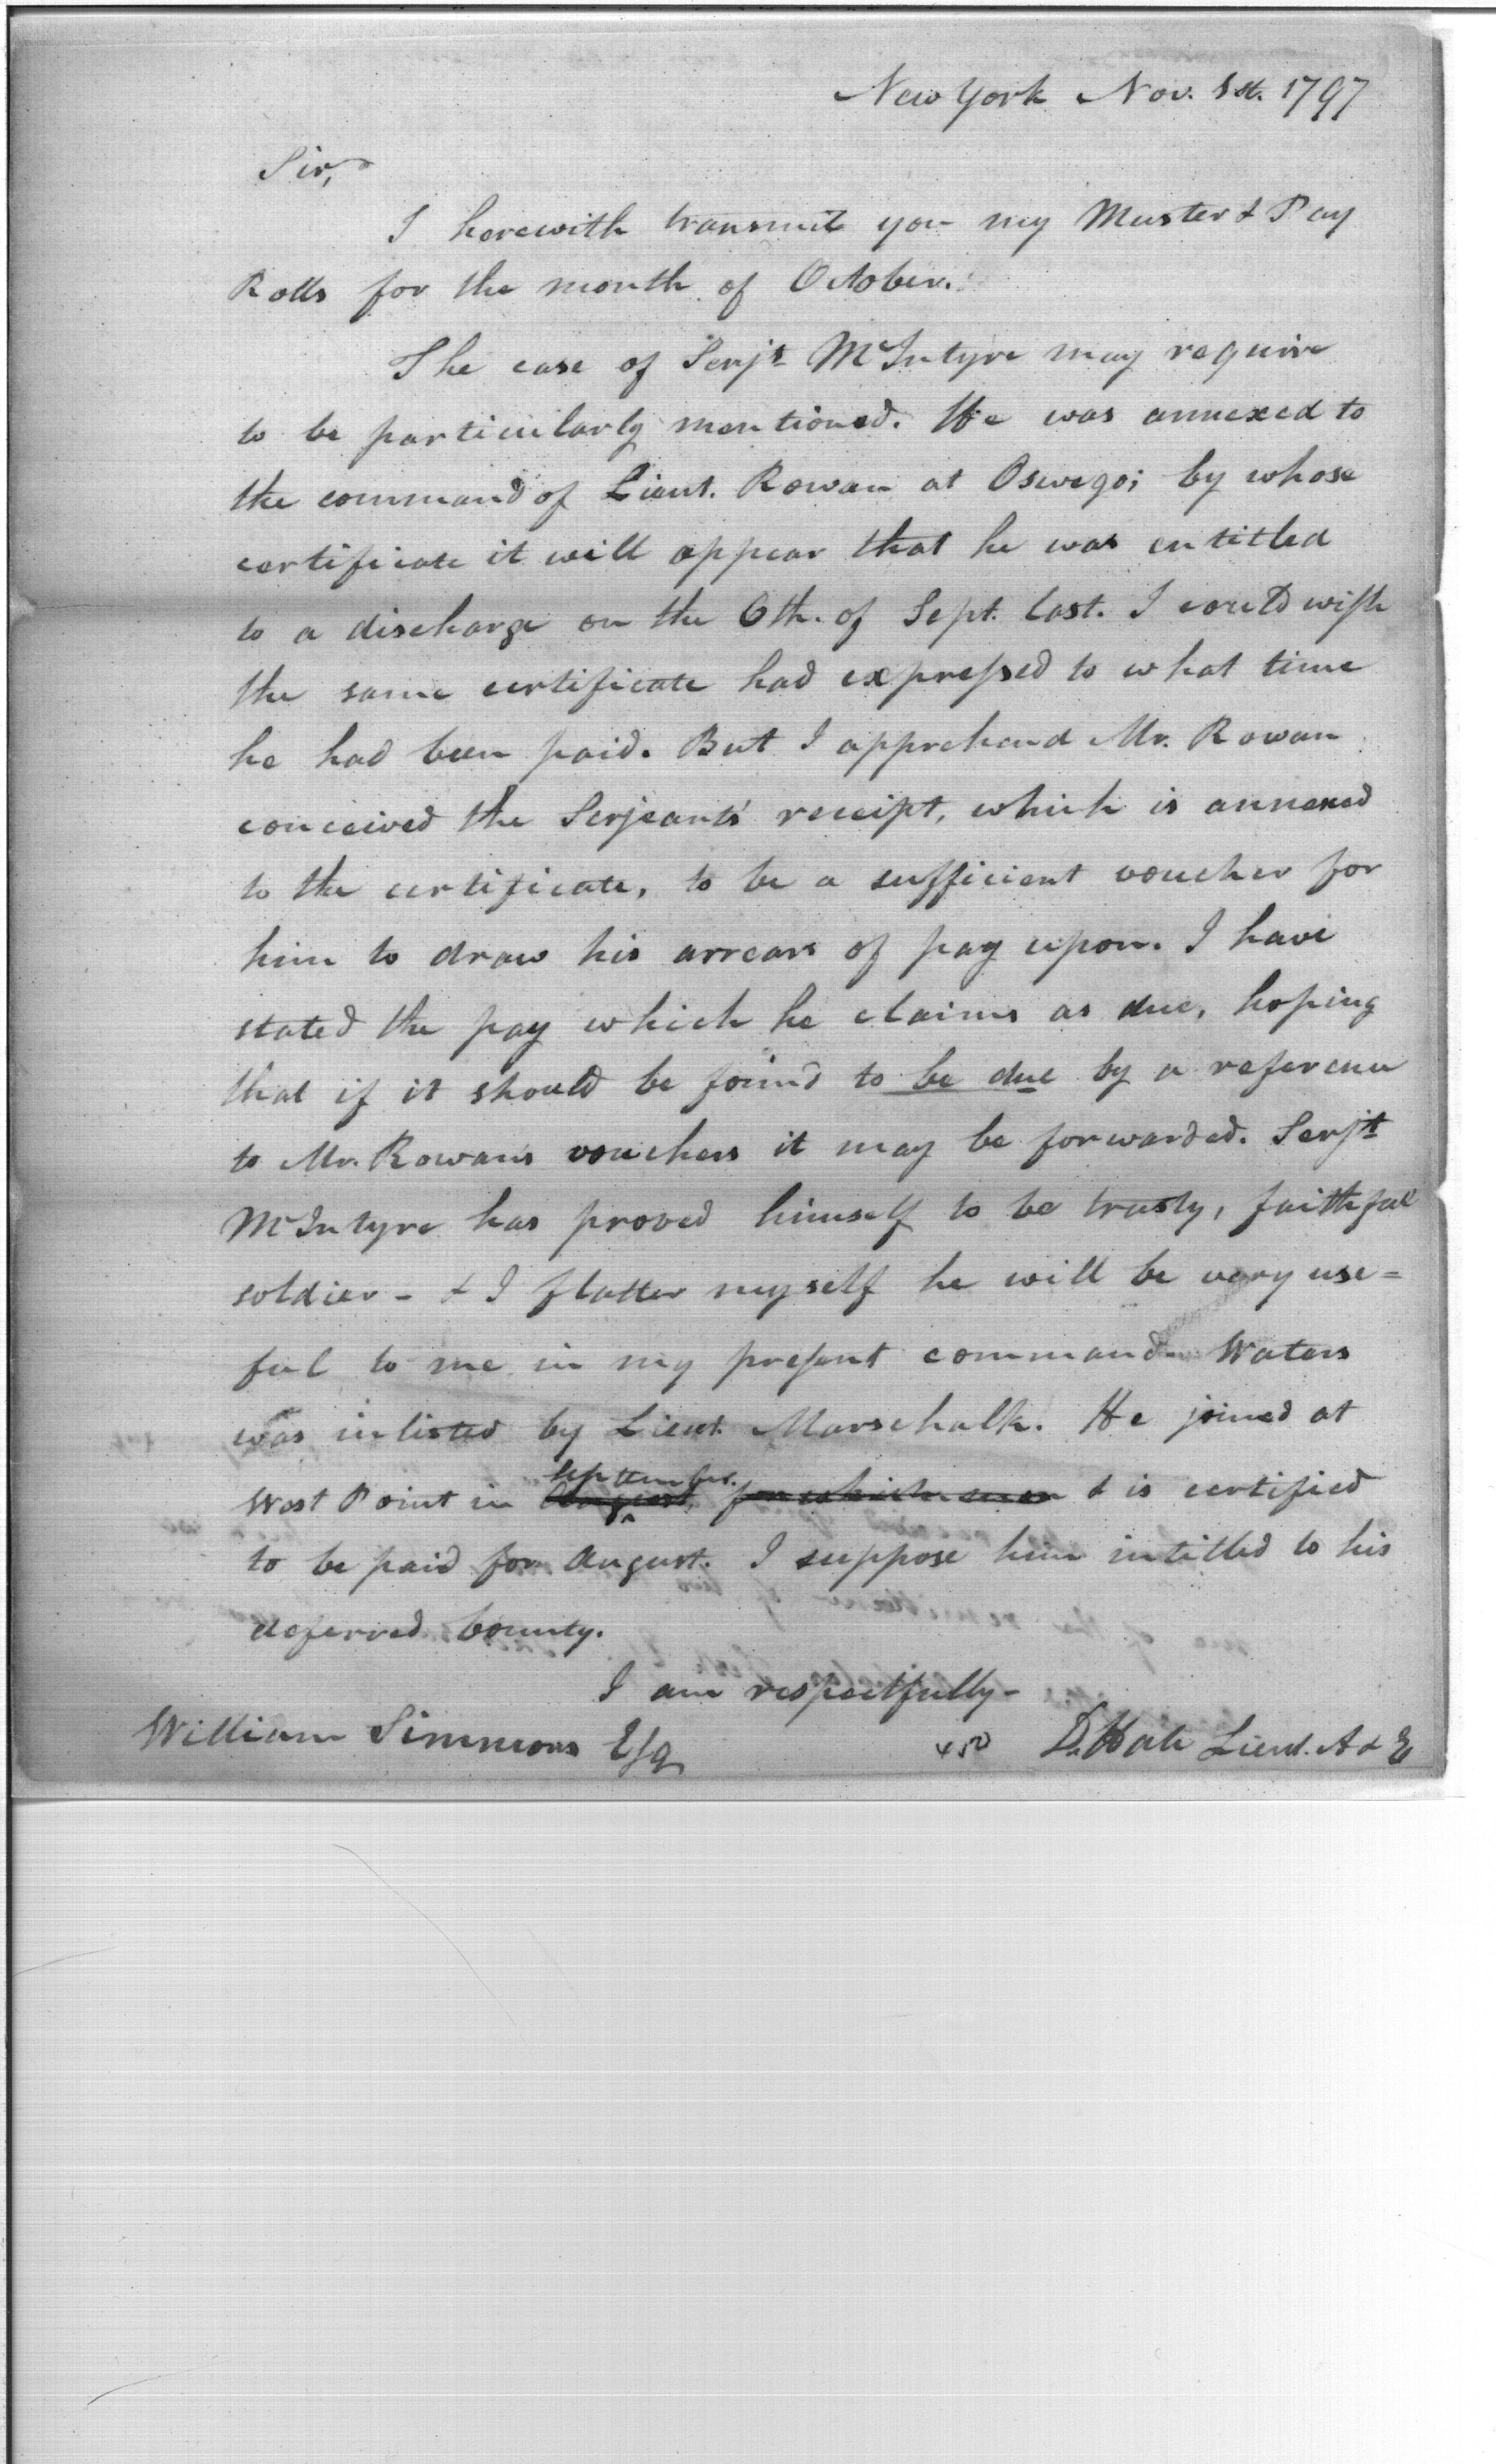 New York Nov. 1st. 1797
Sir,
I herewith transmit you my Muster & Pay
Rolls for the month of October.
The case of Serjt McIntyre may require
to be particularly mentioned. He was annexed to
the command of Lieut. Rowan at Oswego; by whose
certificate it will appear that he was entitled
to a discharge on the 6th. of Sept. last. I could wish
the same certificate had expressed to what time
he had been paid. But I apprehend Mr. Rowan
conceived the Serjeants' receipt, which is annexed
to the certificate, to be a sufficient voucher for
him to draw his arrears of pay upon. I have
stated the pay which he claims as due, hoping
that if it should be found to be due by a reference
to Mr. Rowan's vouchers it may be forwarded. Serjt
McIntyre has proved himself to be trusty, faithful
soldier - & I flatter myself he will be very use=
ful to me in my present command. Waters
was inlisted by Lieut. Marschalk. He joined at
September.
West Point in August, for which & is certified
to be paid for August. I suppose him intitled to his
deferred bounty.
I am respectfully-
William Simmons Esq D. Hale Lieut. A & E